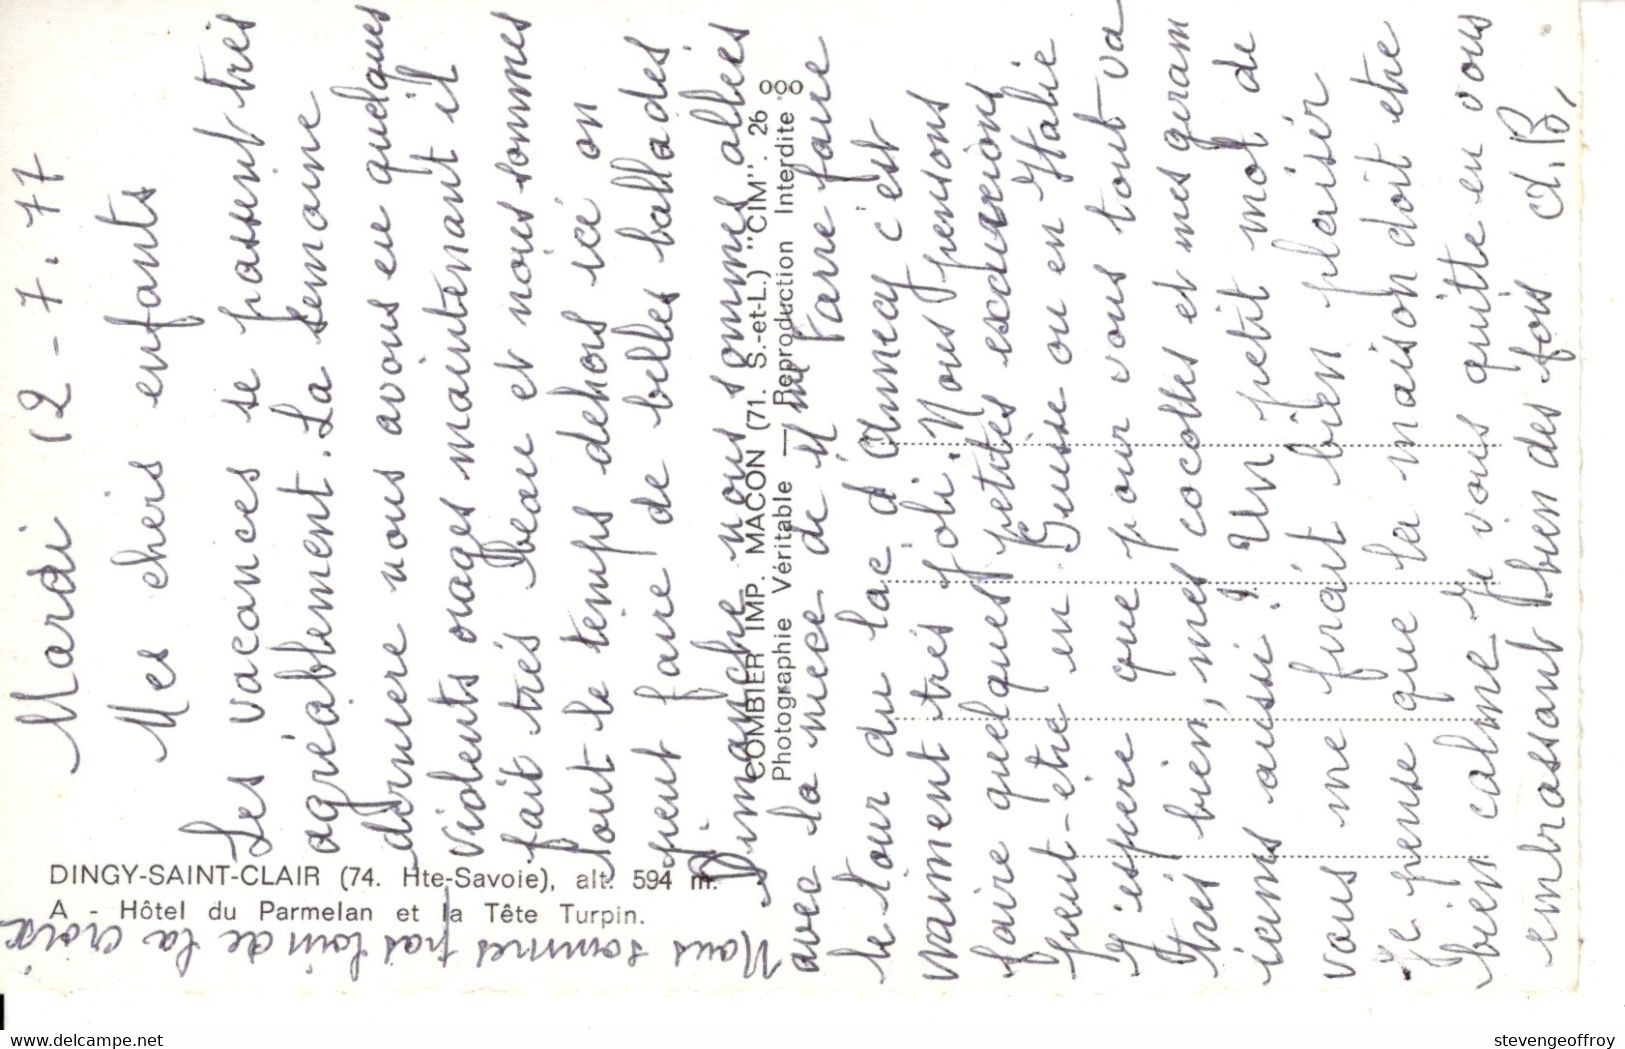 Mardi 12-7.77
Mes chers enfants
Les vacances se passent très
agréablement. La semaine
dernière nous avons eu quelques
violents orages maintenant il
fait très beau et nous sommes
tout le temps dehors ici on
peut faire de belles ballades
Dimanche nous sommes allées
avec la nièce de Mme faire
le tour du lac d'Annecy c'est
vraiment très joli. Nous pensons
faire quelques petites excursions
peut-être en Suisse ou en Italie
J'espère que pour vous tout va
très bien, mes cocottes et mes
aussi? Un petit mot de
vous me ferait bien plaisir
Je pense que la maison doit etre
bien calme. Je vous quitte en vous
embrassant bien des fois A.B.
Nous sommes pas loin de la croix
DINGY-SAINT-CLAIR (74. Hte-Savoie), alt. 594 m.
A - Hôtel du Parmelan et la Tête Turpin.
COMBIER IMP. MACON (71. S.-et-L.) "CIM". 26
Photographie Véritable — Reproduction Interdite
www.delcampe.net
stevengeoffroy